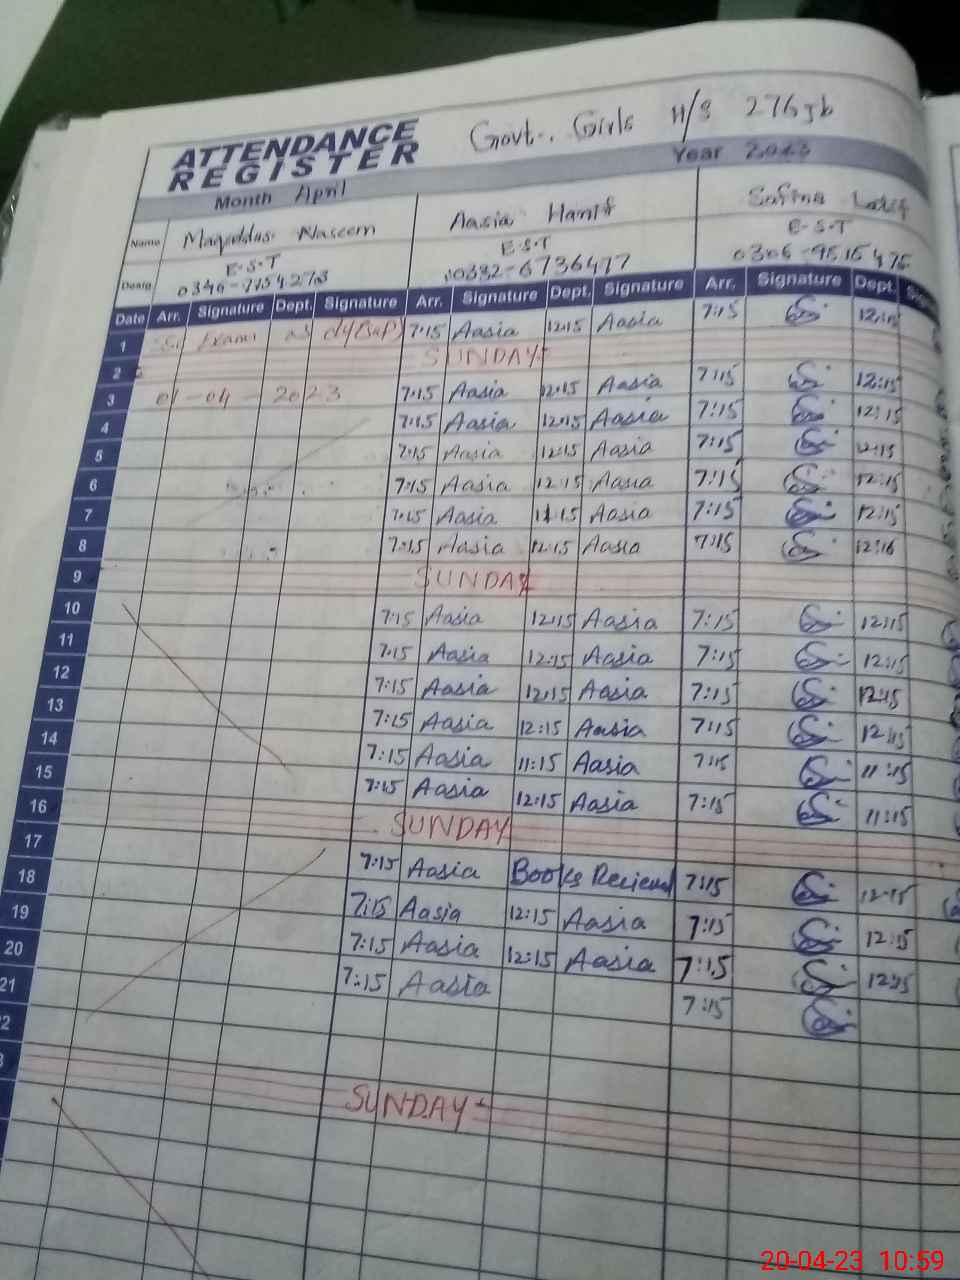 Govt. Girls H/S 276 Jb
ATTENDANCE
REGISTER
Month April Year 2023
Name Maqaddas Naseem Aasia Hanif Safina Latif
E-S-T E-S-T E-S-T
Desig. 0332-6736477
Date Arr. Signature Dept. Signature Arr. Signature Dept. Signature Arr. Signature Dept.
1 Exam as 7:15 Aasia 12:15 Aasia 7:15 12:15
2 SUNDAY
3 01-04-2023 7:15 Aasia 12:15 Aasia 7:15 12:15
4 7:15 Aasia 12:15 Aasia 7:15 12:15
5 7:15 Aasia 12:15 Aasia 7:15 12:15
6 7:15 Aasia 12:15 Aasia 7:15 12:15
7 7:15 Aasia 11:15 Aasia 7:15 12:15
8 7:15 Aasia 12:15 Aasia 7:15 12:16
9 SUNDAY
10 7:15 Aasia 12:15 Aasia 7:15 12:15
11 7:15 Aasia 12:15 Aasia 7:15 12:15
12 7:15 Aasia 12:15 Aasia 7:15 12:15
13 7:15 Aasia 12:15 Aasia 7:15 12:15
14 7:15 Aasia 11:15 Aasia 7:15 11:15
15 7:15 Aasia 12:15 Aasia 7:15 11:15
16 SUNDAY
17 7:15 Aasia Books Recieved 7:15 12:15
18 7:15 Aasia 12:15 Aasia 7:15 12:15
19 7:15 Aasia 12:15 Aasia 7:15 12:15
20 7:15 Aasia 7:15
21
SUNDAY
20-04-23 10:59